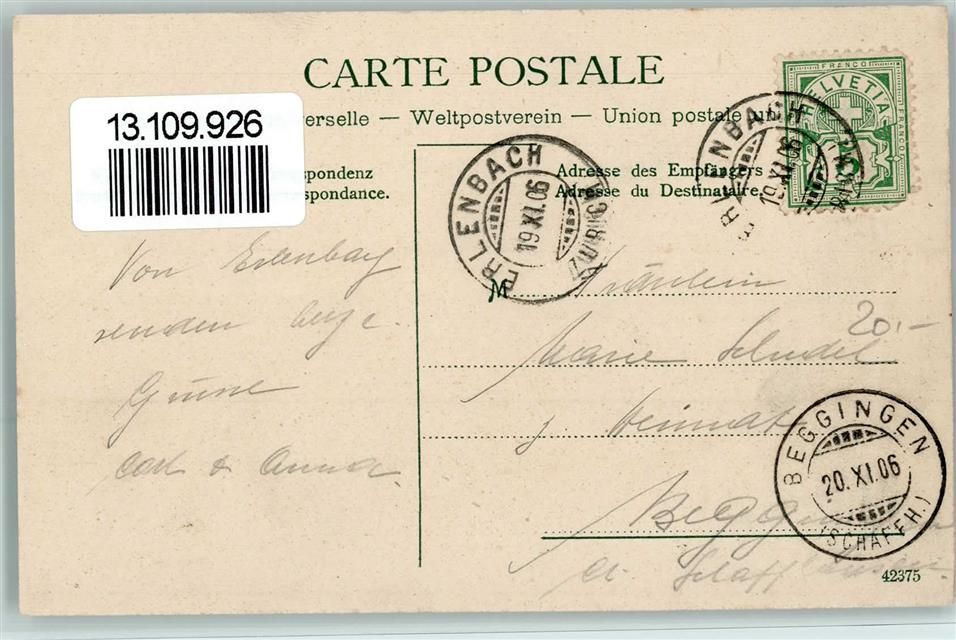 CARTE POSTALE
13.109.926
erselle — Weltpostverein — Union postale uni
spondenz
spondance.
Adresse des Empfängers
Adresse du Destinataire.
FRANCO
HELVETIA
FRANCO
5
ERLENBACH
19.XI.06
(ZÜRICH)
ERLENBACH
19.XI.06
(ZÜRICH)
Von Erlenbach
senden herzl.
Grüsse
Carl & Anna.
M
Fräulein
20.-
Marie Schudel
z. Heimat
Beggingen
Ct. Schaffhausen.
BEGGINGEN
20.XI.06
(SCHAFFH.)
42375